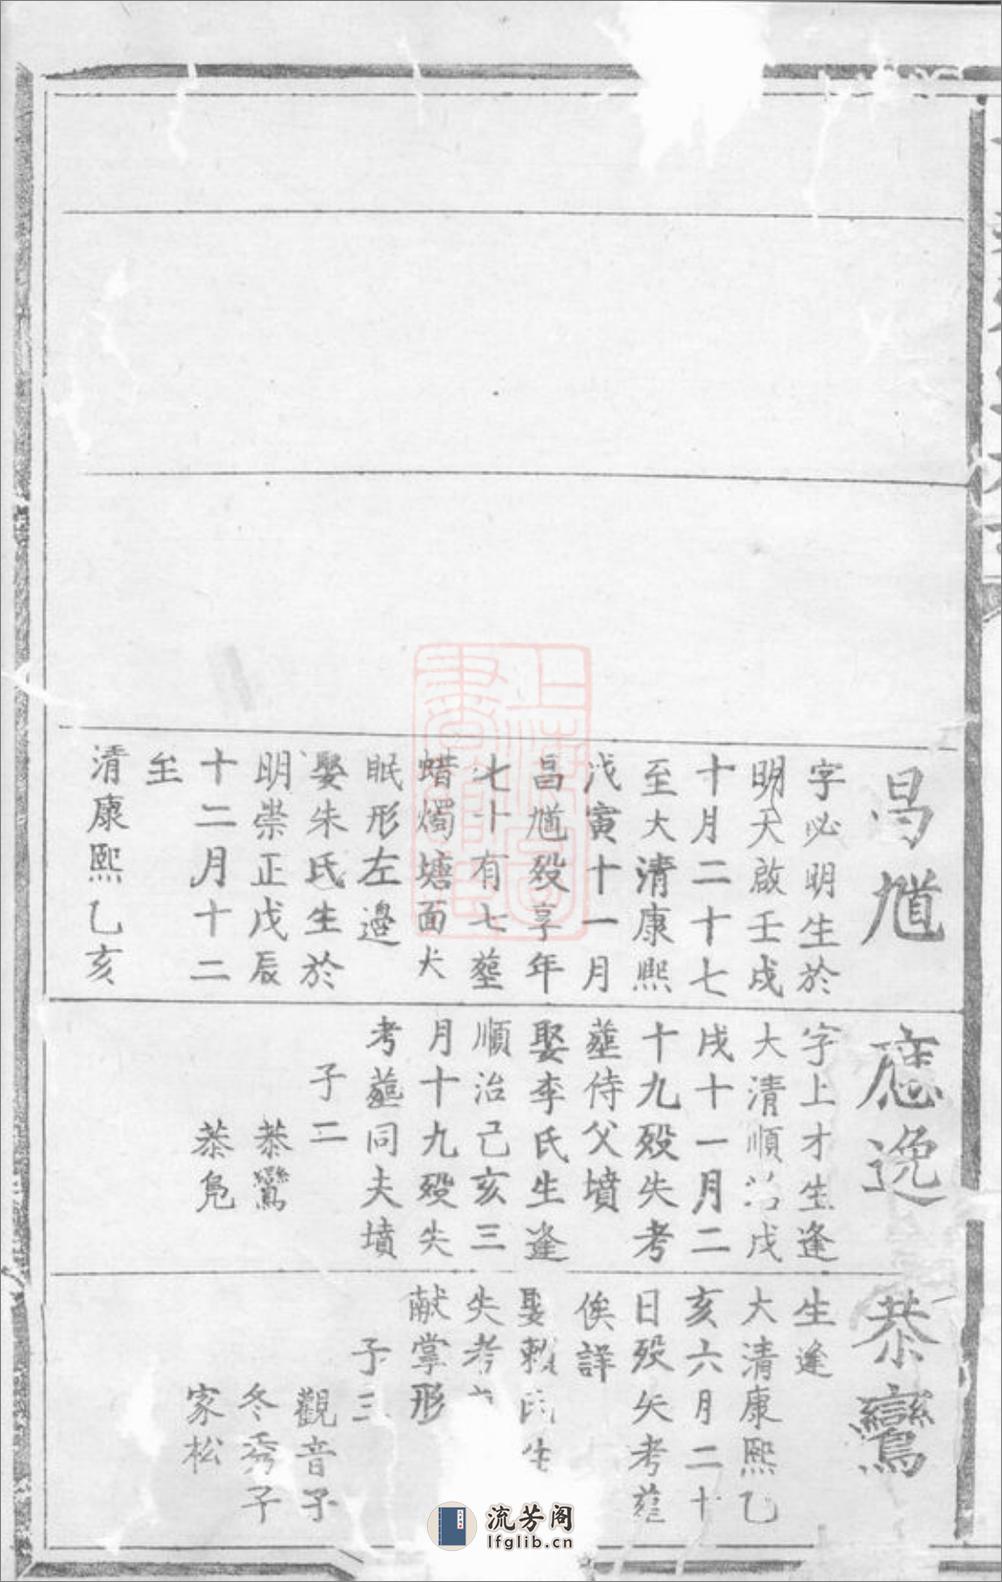 昌馗
字必明生於
明天啟壬戌
十月二十七
至大清康熙
戊寅十一月
昌馗殁享年
七十有七塟
蜡燭塘面犬
眠形左邉
娶朱氏生於
明崇正戊辰
十二月十二
至
清康熙乙亥
應逸
字上才生逢
大清順治戊
戌十一月二
十九殁失考
塟侍父墳
娶李氏生逢
順治己亥三
月十九殁失
考塟同夫墳
子二
恭鸞
恭凫
恭鸞
生逢
大清康熙乙
亥六月二十
日殁失考塟
俟詳
娶賴氏生
失考
献掌形
子三
觀音子
冬秀子
家松
流芳阁
lfglib.cn